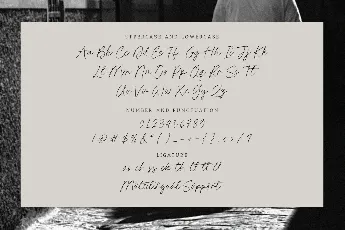 UPPERCASE AND LOWERCASE
Aa Bb Cc Dd Ee Ff Gg Hh Ii Jj Kk
Ll Mm Nn Oo Pp Qq Rr Ss Tt
Uu Vv Ww Xx Yy Zz
NUMBER AND PUNCTUATION
0123456789
LIGATURE
Multilingual Support